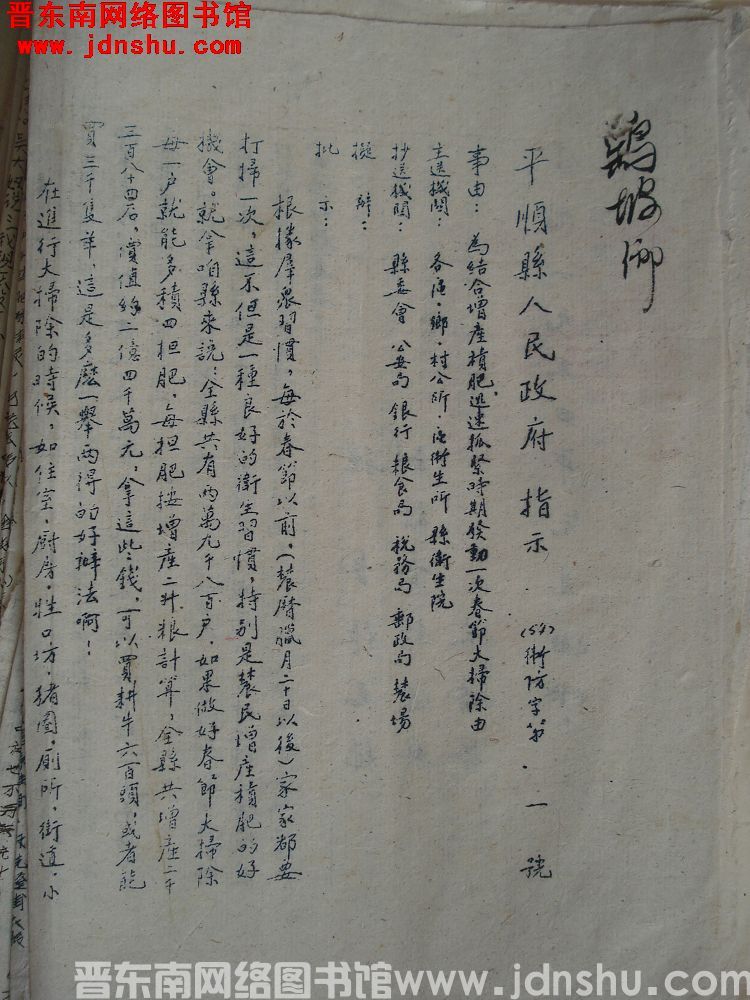 晋东南网络图书馆
www.jdnshu.com
鷄坡鄉
平順縣人民政府指示 (54)衛防字第·一號
事由：為結合增產積肥迅速抓緊時期發動一次春節大掃除由
主送機關：各區·鄉·村公所·區衛生所 縣衛生院
抄送機關：縣委會 公安局 銀行 粮食局 稅務局 郵政局 農場
擬辦：
批示：
根據羣眾習慣，每於春節以前，（農曆臘月二十日以後）家家都要
打掃一次，這不但是一種良好的衛生習慣，特别是農民增產積肥的好
機會。就拿咱縣來説：全縣共有兩萬九千八百户，如果做好春節大掃除
每一户就能多積四担肥，每担肥按增產二升粮計算，全縣共增產二千
三百八十四石，價值 二億四千萬元，拿這些錢，可以買耕牛六百頭，或者能
買三千隻羊，這是多麽一舉两得的好辦法啊！
在進行大掃除的時候，如住室，厨房，牲口坊，猪圈，厠所，街道，小
晋东南网络图书馆www.jdnshu.com